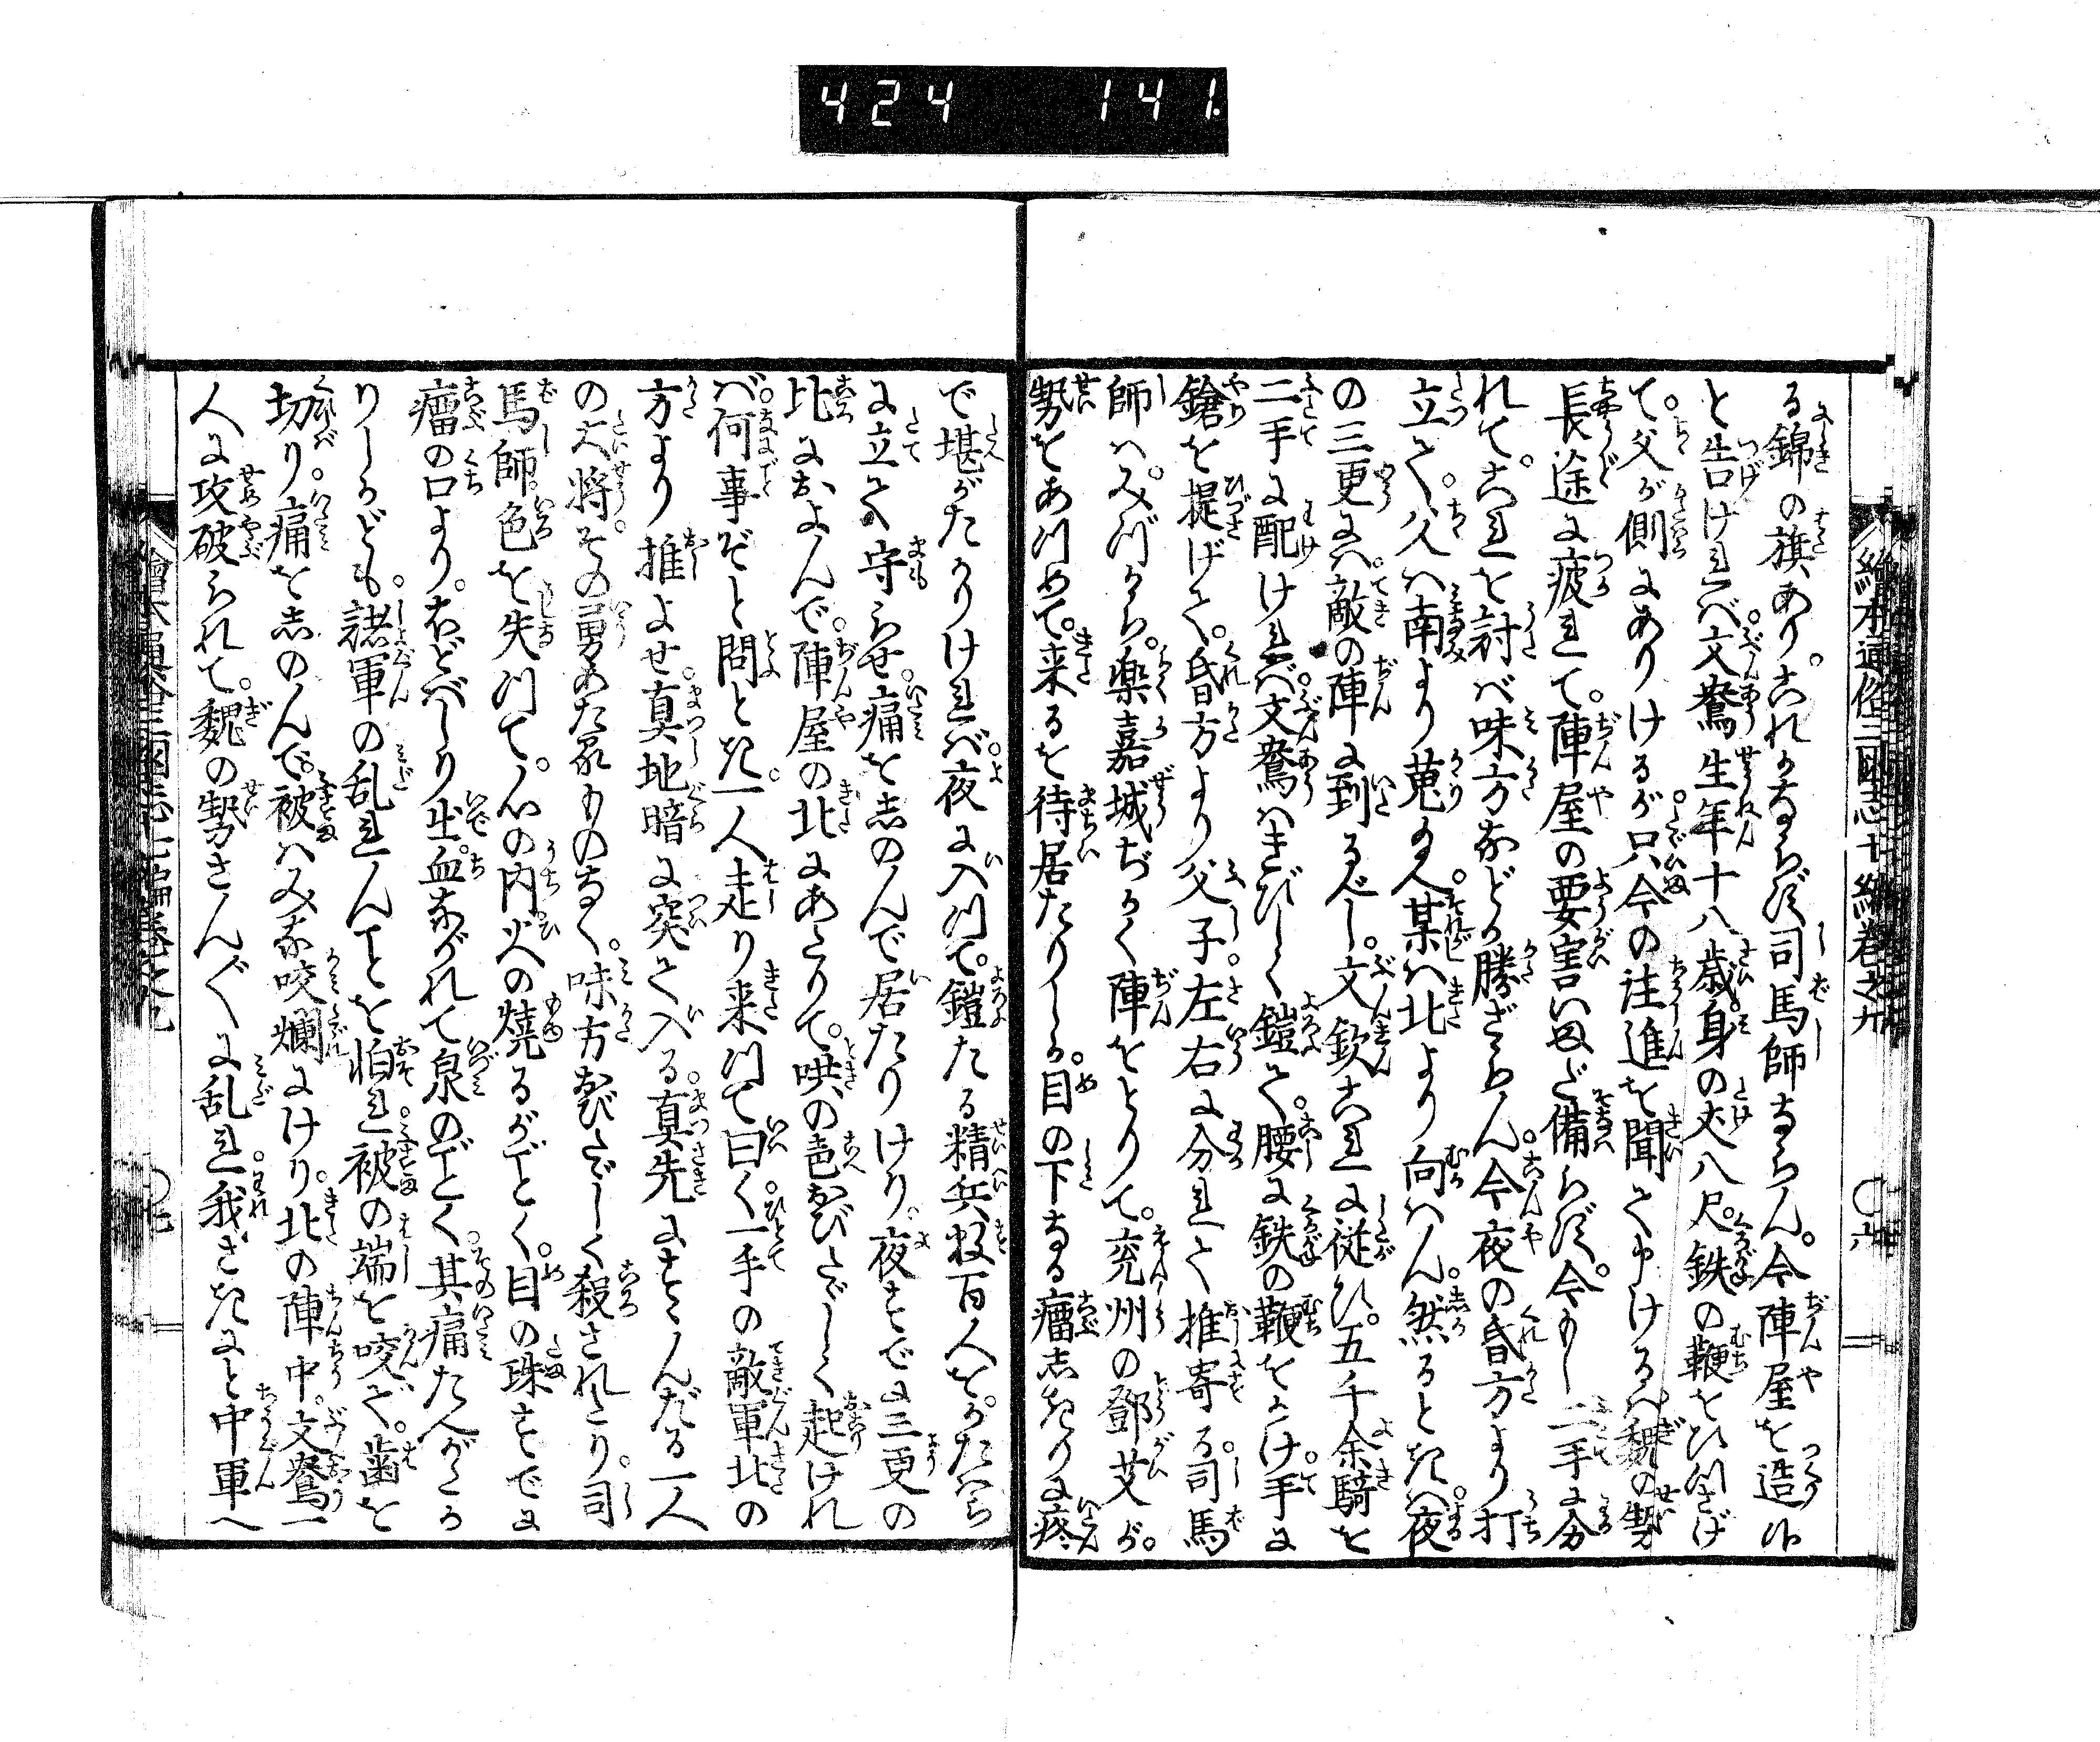 424 141.
繪本通俗三國志七編卷之九
〇六
る錦の旗あり。これかならず司馬師ならん。今陣屋を造ル
と告ければ。文鴦生年十八歳。身の丈八尺。鉄の鞭をひつさげ
て。父が側にありけるが。只今の注進を聞て申けるハ。魏の勢
長途に疲れて。陣屋の要害いまだ備らず。今もし二手に分
れて。これを討バ味方などか勝ざらん。今夜の昏方より打
立て。父ハ南より蒐り玉へ。某ハ北より向ハん。然るときハ。夜
の三更にハ敵の陣に到るべし。文欽これに従ひ。五千余騎を
二手に配ければ。文鴦ハきびしく鎧て。腰に鉄の鞭をかけ。手に
鎗を提げて。昏方より父子。左右に分れて推寄る。司馬
師ハ。みづから。楽嘉城ぢかく陣をとりて。兖州の鄧艾が。
勢をあつめて。来るを待居たりしが。目の下なる瘤しきりに疼
で堪がたかりければ。夜に入て。鎧たる精兵数百人を。かたハら
に立て守らせ。痛をしのんで居たりけり。夜すでに三更の
比におよんで。陣屋の北にあたりて。哄の声おびたゞしく起けれ
バ。何事ぞと問とき。一人走り来つて曰く。一手の敵軍北の
方より推よせ。真地暗に突て入る。真先にすゝんだる一人
の大将。その勇あたるものなく。味方おびたゞしく殺されたり。司
馬師。色を失つて。心の内火の燒るがごとく。目の珠すでに
瘤の口より。ほどばしり出。血ながれて泉のごとく。其痛たへがたか
りしかども。諸軍の乱れんことを怕れ。被の端を咬で。歯を
切り。痛をしのんで。被ハみな咬爛にけり。北の陣中。文鴦一
人に攻破られて。魏の勢さん〲に乱れ。我さきにと中軍へ
〇七